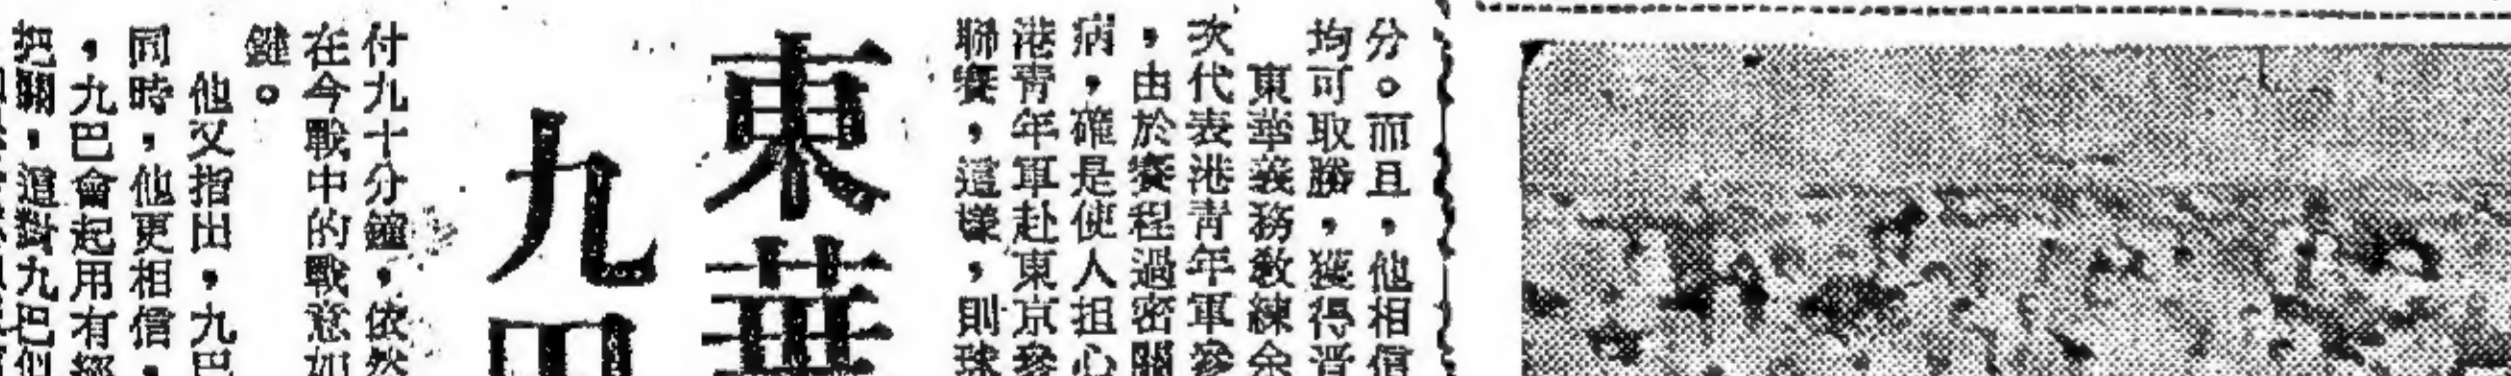 分。而且，他相信
均可取勝，獲得晋
東華義務教練余
次代表港青年軍參
，由於賽程過密關
病，確是使人担心
港青年軍赴東京參
聯賽，這樣，則球
東華
九巴
付九十分鐘，依然
在今戰中的戰意如
鍵。
他又指出，九巴
同時，他更相信，
，九巴會起用有經
把關，這對九巴似